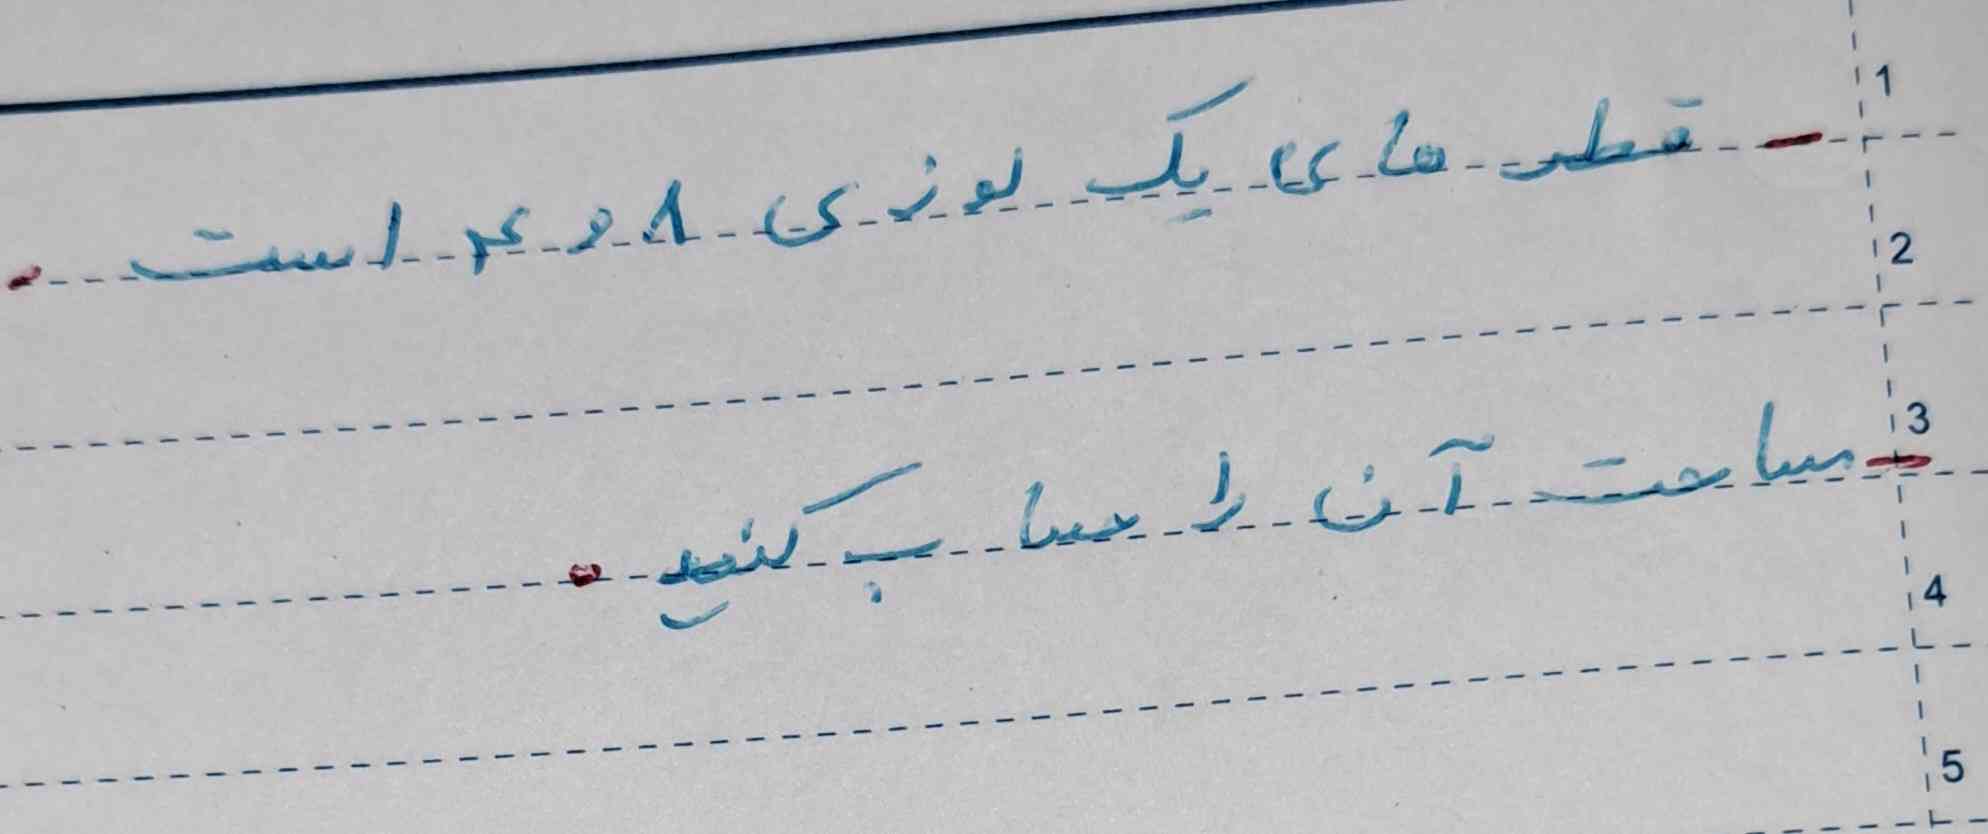 - قطر های یک لوزی ۸ و ۴ است.
- مساحت آن را حساب کنید.
1
2
3
4
5